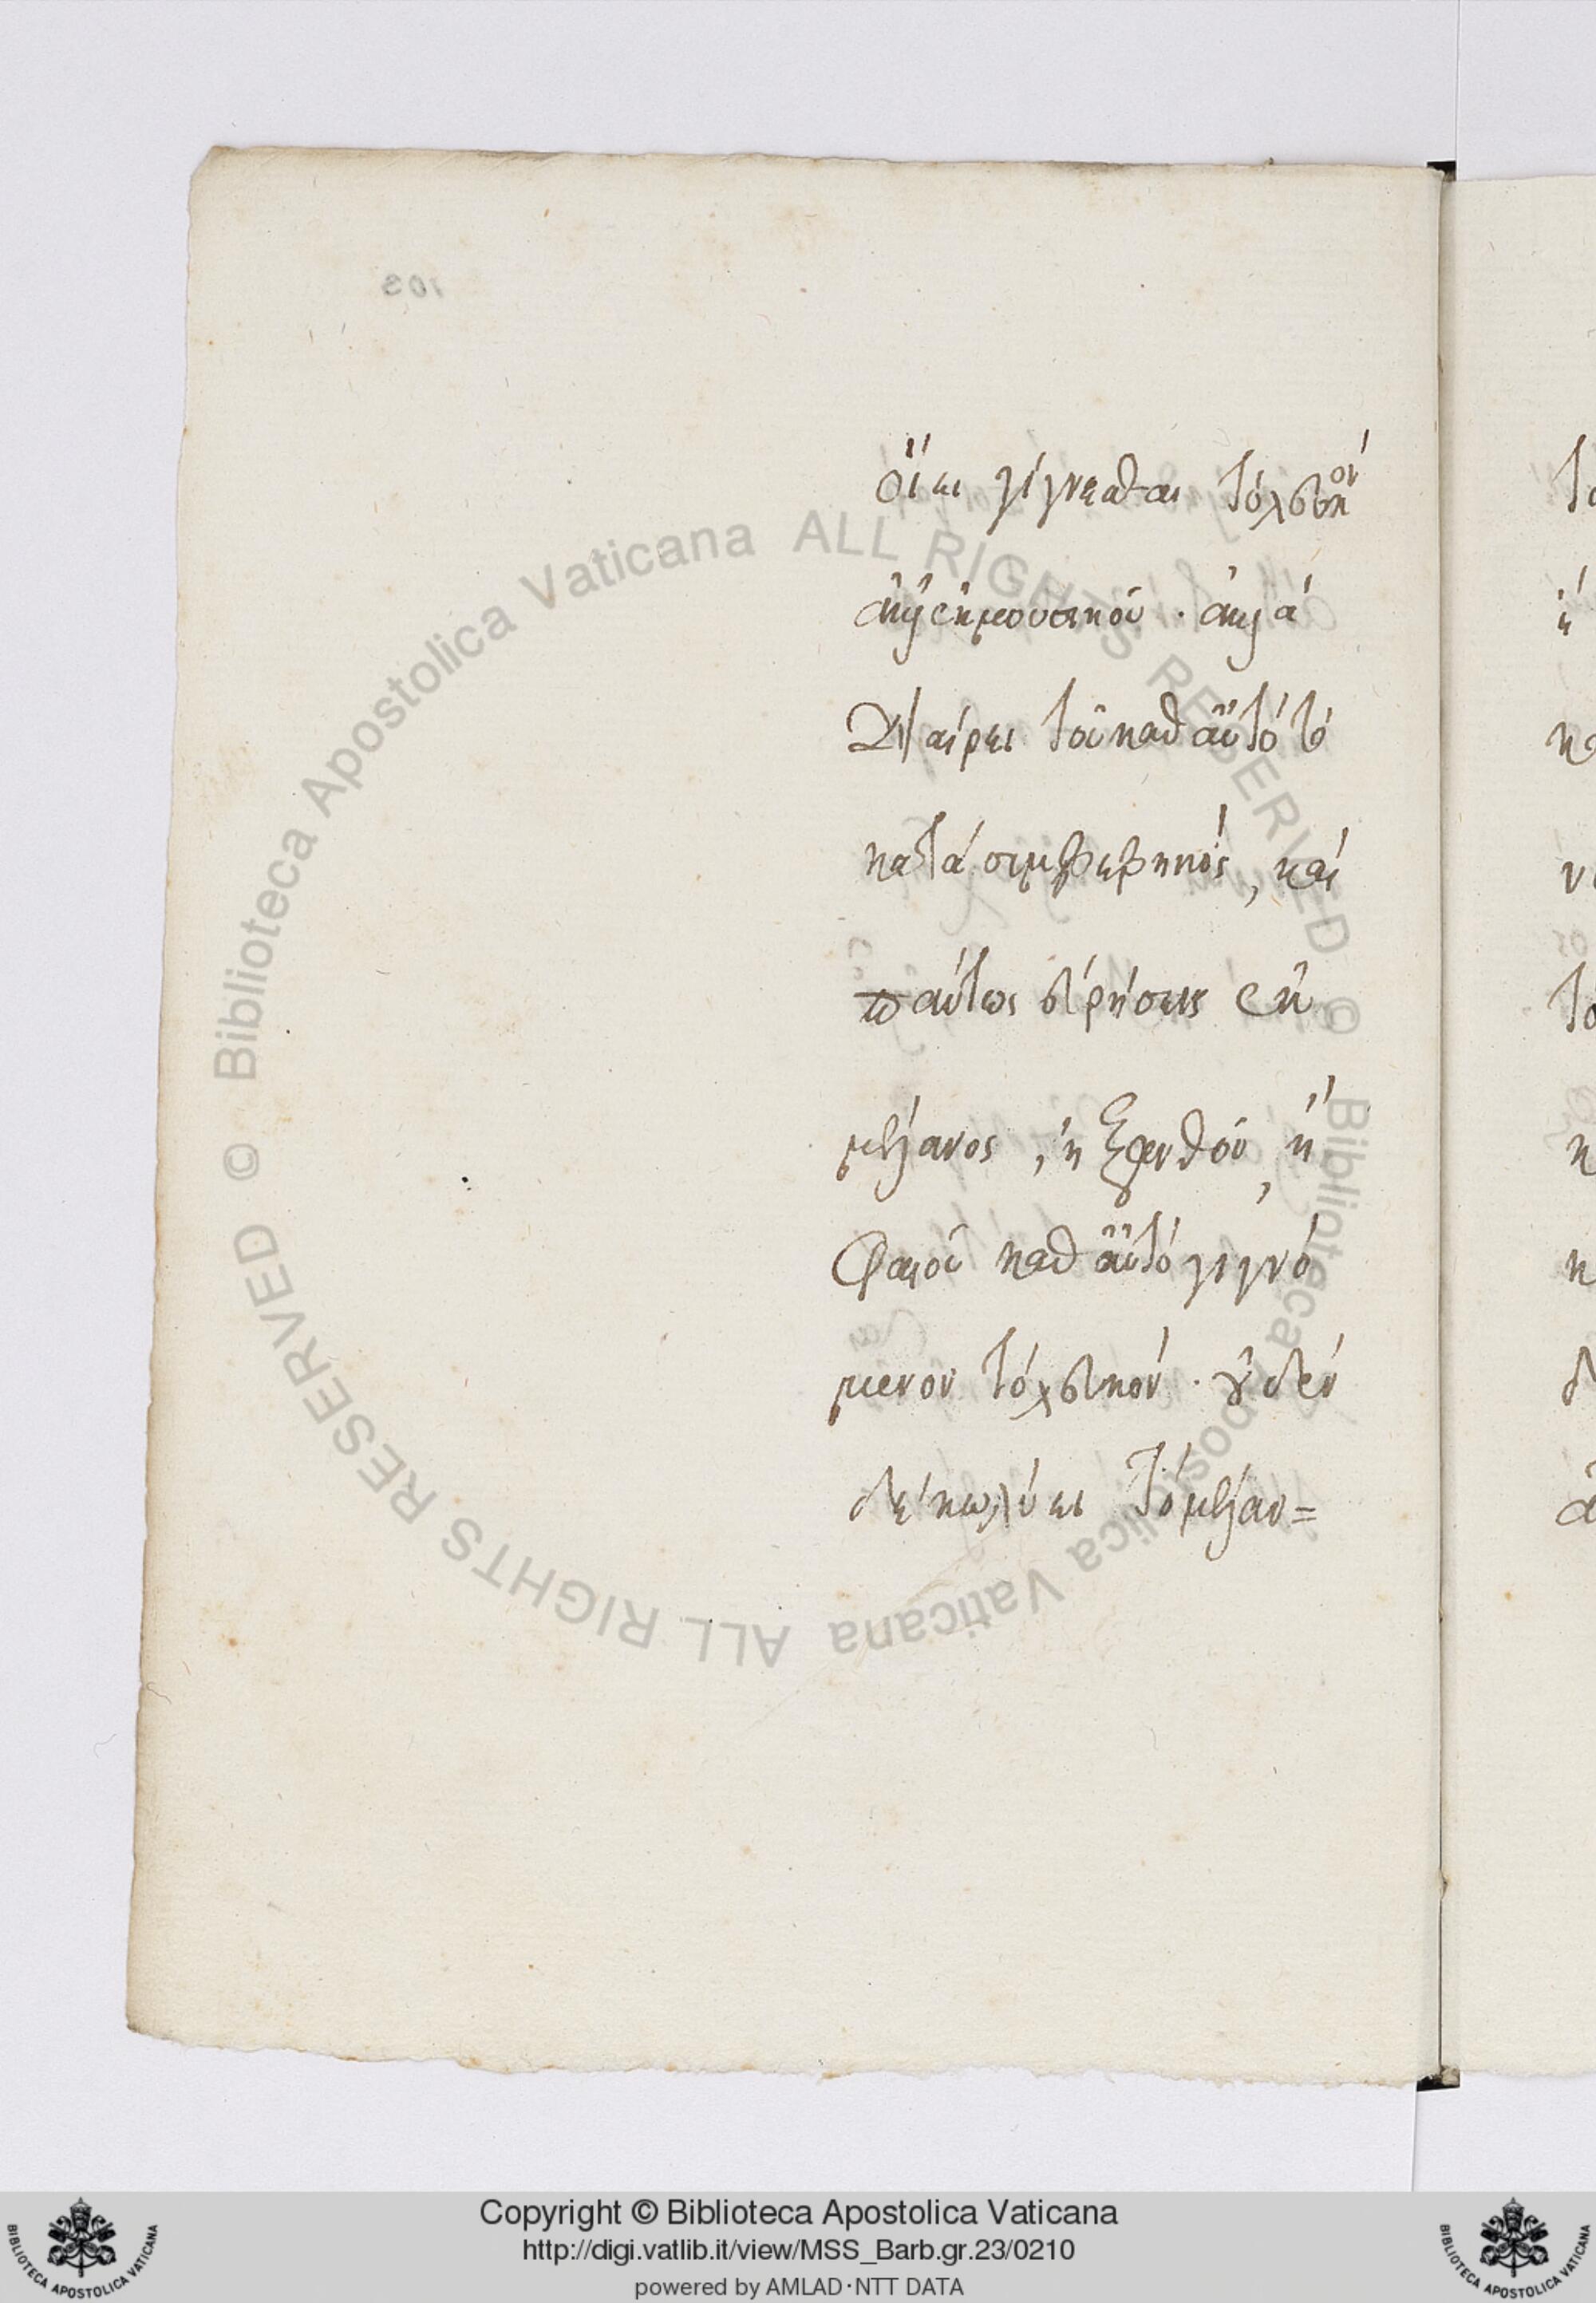 οἴει γίγνεσθαι τὸ λευκὸν
ἀλλ' ἐκ μουσικοῦ · ἀλλὰ
Διαίρει τοῦ καθ αὑτὸ τὸ
κατὰ συμβεβηκός, καὶ
πάντως εὑρήσεις ἐκ
μέλανος, ἢ ξανθοῦ, ἢ
φαιοῦ καθ αὑτὸ γιγνό
μενον τὸ λευκόν · οὐδὲν
δὲ κωλύει τὸ μέλαν=
© Biblioteca Apostolica Vaticana ALL RIGHTS RESERVED © Biblioteca Apostolica Vaticana ALL RIGHTS RESERVED
Copyright © Biblioteca Apostolica Vaticana
http://digi.vatlib.it/view/MSS_Barb.gr.23/0210
powered by AMLAD·NTT DATA
BIBLIOTECA APOSTOLICA VATICANA
BIBLIOTECA APOSTOLICA VATICANA